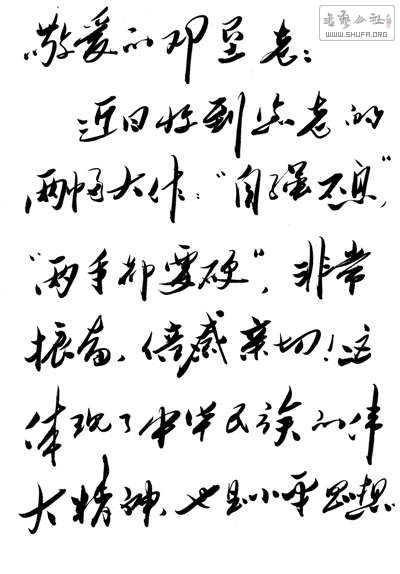 书艺公社
WWW.SHUFA.ORG
敬爱的邓垦老：
近日收到您老的
两幅大作：“自强不息”，
“两手都要硬”，非常
振奋，倍感亲切！这
体现了中华民族的伟
大精神，也是小平思想